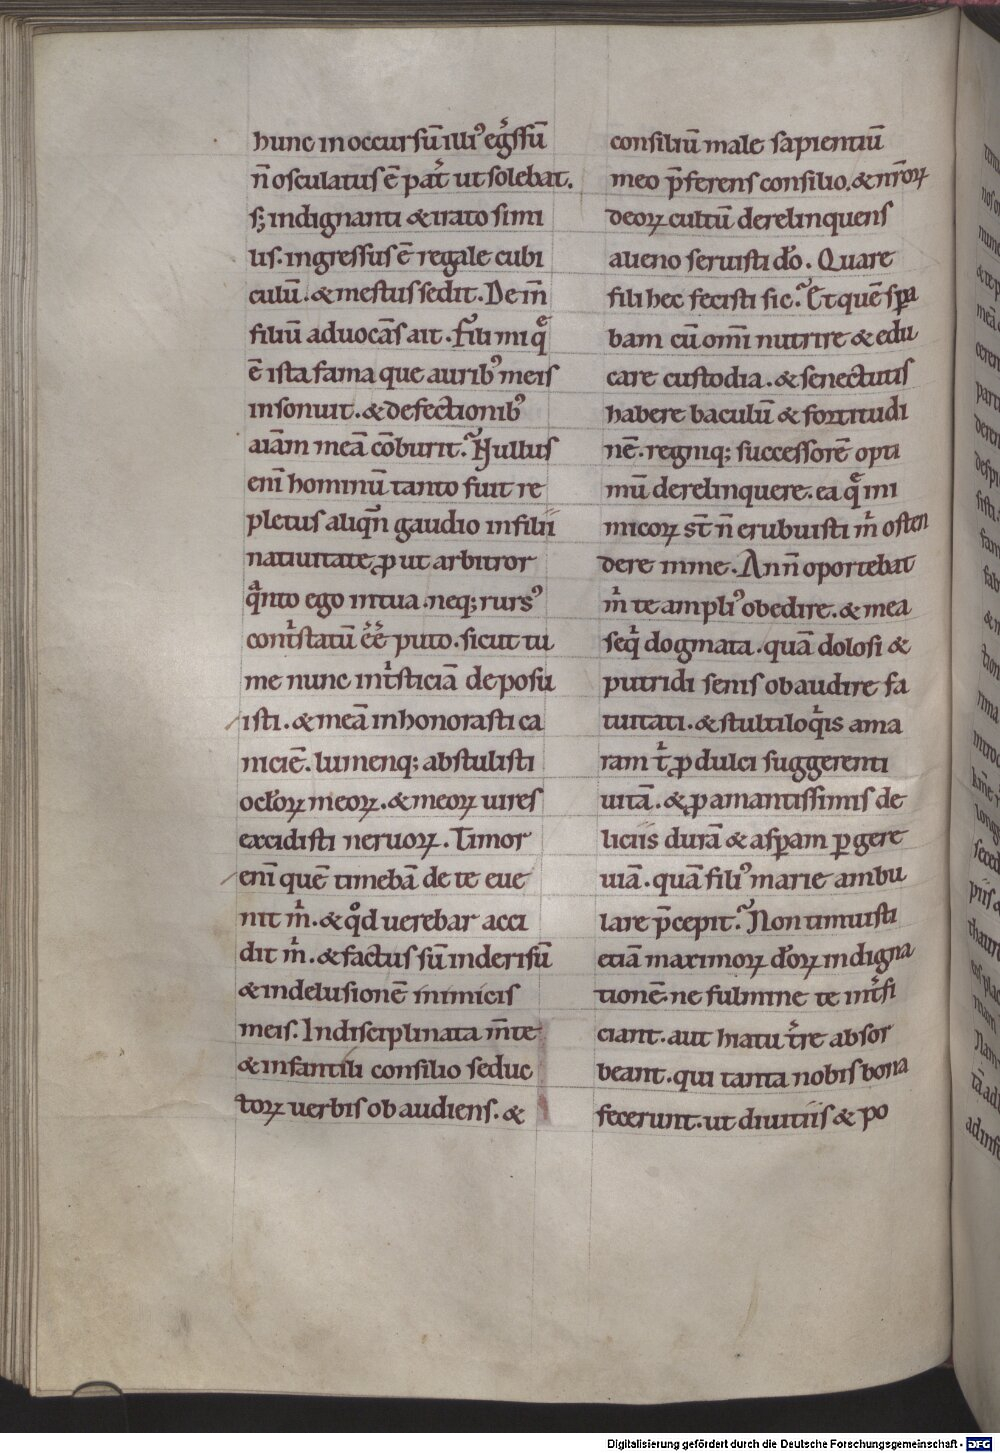 hunc in occursū illiꝰ egͥssū
n̄ osculatus ē pat̾ ut solebat.
sꝫ indignanti & irato simi
lis. ingressus ē regale cubi
culū. & mestus sedit. Dem̄
filiū aduocās ait. Fili mi qͣ̄
ē ista fama que auribꝰ meis
insonuit. & defectionibꝰ
aiām meā cōburit? Nullus
eni hominū tanto fuit re
pletus aliqn̄ gaudio in filii
natiuitate ꝓut arbitror
qͣnto ego in tua. neqꝫ rursꝰ
contͥstatū eē puto. sicut tu
me nunc in tͥsticiā deposu
isti. & meā inhonorasti ca
niciē. lumenqꝫ abstulisti
oclorꝝ meorꝝ. & meorꝝ uires
excidisti neruorꝝ. Timor
eni quē timebā de te eue
nit m̾. & qͦd uerebar acci
dit m̾. & factus sū in derisū
& in delusionē inimicis
meis. Indisciplinata m̄te
& infantili consilio seduc
torꝝ uerbis obaudiens. &
consiliū male sapientiū
meo p̄ferens consilio. & nr̄orꝝ
deorꝝ cultū derelinquens
alieno seruisti do. Quare
fili hec fecisti sic? Et quē spa
bam cū omi nutrire & edu
care custodia. & senectutis
habere baculū & fortitudi
nē. regniqꝫ successorē opti
mū derelinquere. ea qͣ̄ ini
micorꝝ st̄ n̄ erubuisti m̾ osten
dere in me. Ann̄ oportebat
m̾ te ampliꝰ obedire. & mea
seqͥ dogmata. quā dolosi &
putridi senis obaudire fa
tuitati. & stultiloqͥis ama
ram t̾ ꝓ dulci suggerenti
uitā. & ꝓ amantissimis de
liciis durā & aspam ꝑgere
uiā. quā filiꝰ marie ambu
lare p̄cepit? Non timuisti
etiā maximorꝝ dorꝝ indigna
tionē. ne fulmine te int̾fi
ciant. aut hiatu t̾re absor
beant. qui tanta nobis bona
fecerunt. ut diuitiis & po
Digitalisierung gefördert durch die Deutsche Forschungsgemeinschaft - DFG